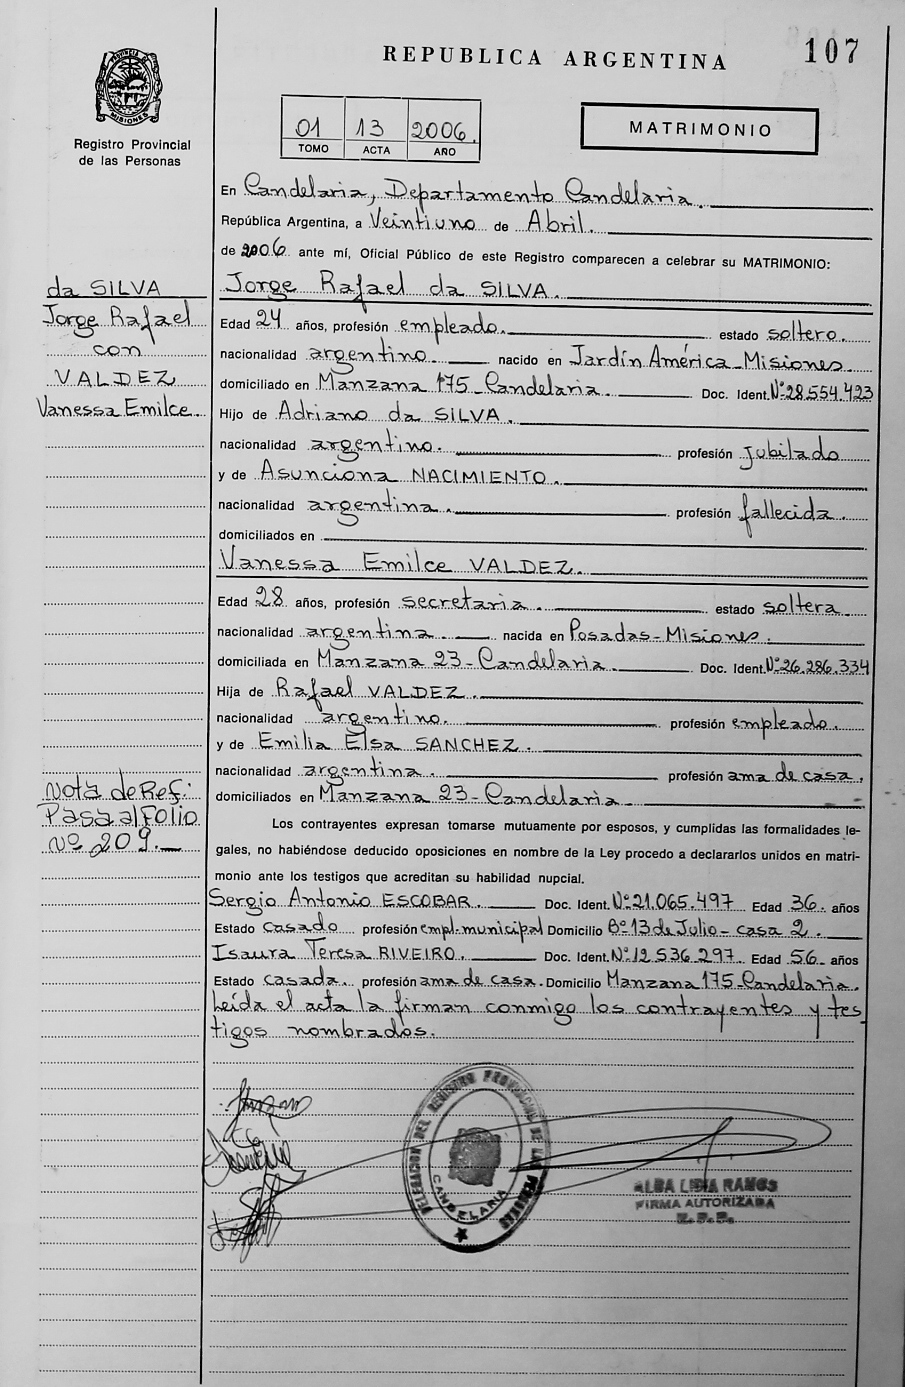 107
REPUBLICA ARGENTINA
PROVINCIA DE MISIONES
Registro Provincial
de las Personas
01 13 2006.
TOMO ACTA AÑO
MATRIMONIO
En Candelaria, Departamento Candelaria.
República Argentina, a Veintiuno de Abril.
de 2006 ante mí, Oficial Público de este Registro comparecen a celebrar su MATRIMONIO:
da SILVA
Jorge Rafael
con
VALDEZ
Vanessa Emilce.
Jorge Rafael da SILVA.
Edad 24 años, profesión empleado. estado soltero.
nacionalidad argentino. nacido en Jardín América-Misiones.
domiciliado en Manzana 175-Candelaria. Doc. Ident. Nº28.554.423
Hijo de Adriano da SILVA.
nacionalidad argentino. profesión jubilado
y de Asunciona NACIMIENTO.
nacionalidad argentina. profesión fallecida.
domiciliados en
Vanessa Emilce VALDEZ.
Edad 28 años, profesión secretaria. estado soltera
nacionalidad argentina nacida en Posadas-Misiones.
domiciliada en Manzana 23-Candelaria. Doc. Ident. Nº26.286.334
Hija de Rafael VALDEZ.
nacionalidad argentino. profesión empleado.
y de Emilia Elsa SANCHEZ.
nacionalidad argentina. profesión ama de casa.
domiciliados en Manzana 23-Candelaria
Nota de Ref:
Pasa al Folio
Nº 209.
Los contrayentes expresan tomarse mutuamente por esposos, y cumplidas las formalidades le-
gales, no habiéndose deducido oposiciones en nombre de la Ley procedo a declararlos unidos en matri-
monio ante los testigos que acreditan su habilidad nupcial.
Sergio Antonio ESCOBAR. Doc. Ident. Nº21.065.497 Edad 36. años
Estado casado profesión empl-municipal Domicilio Bº13 de Julio-casa 2.
Isaura Teresa RIVEIRO. Doc. Ident. Nº12.536.297. Edad 56 años
Estado casada. profesión ama de casa. Domicilio Manzana 175-Candelaria.
Leída el acta la firman conmigo los contrayentes y tes
tigos nombrados.
DELEGACION DEL REGISTRO PROVINCIAL DE LAS PERSONAS
CANDELARIA
ALBA LIDIA RAMOS
FIRMA AUTORIZADA